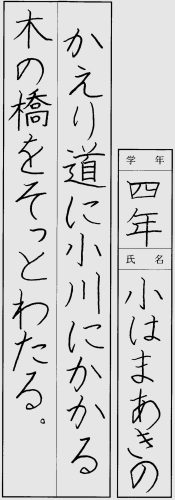 かえり道に小川にかかる
木の橋をそっとわたる。
学年
四年
氏名
小はまあきの